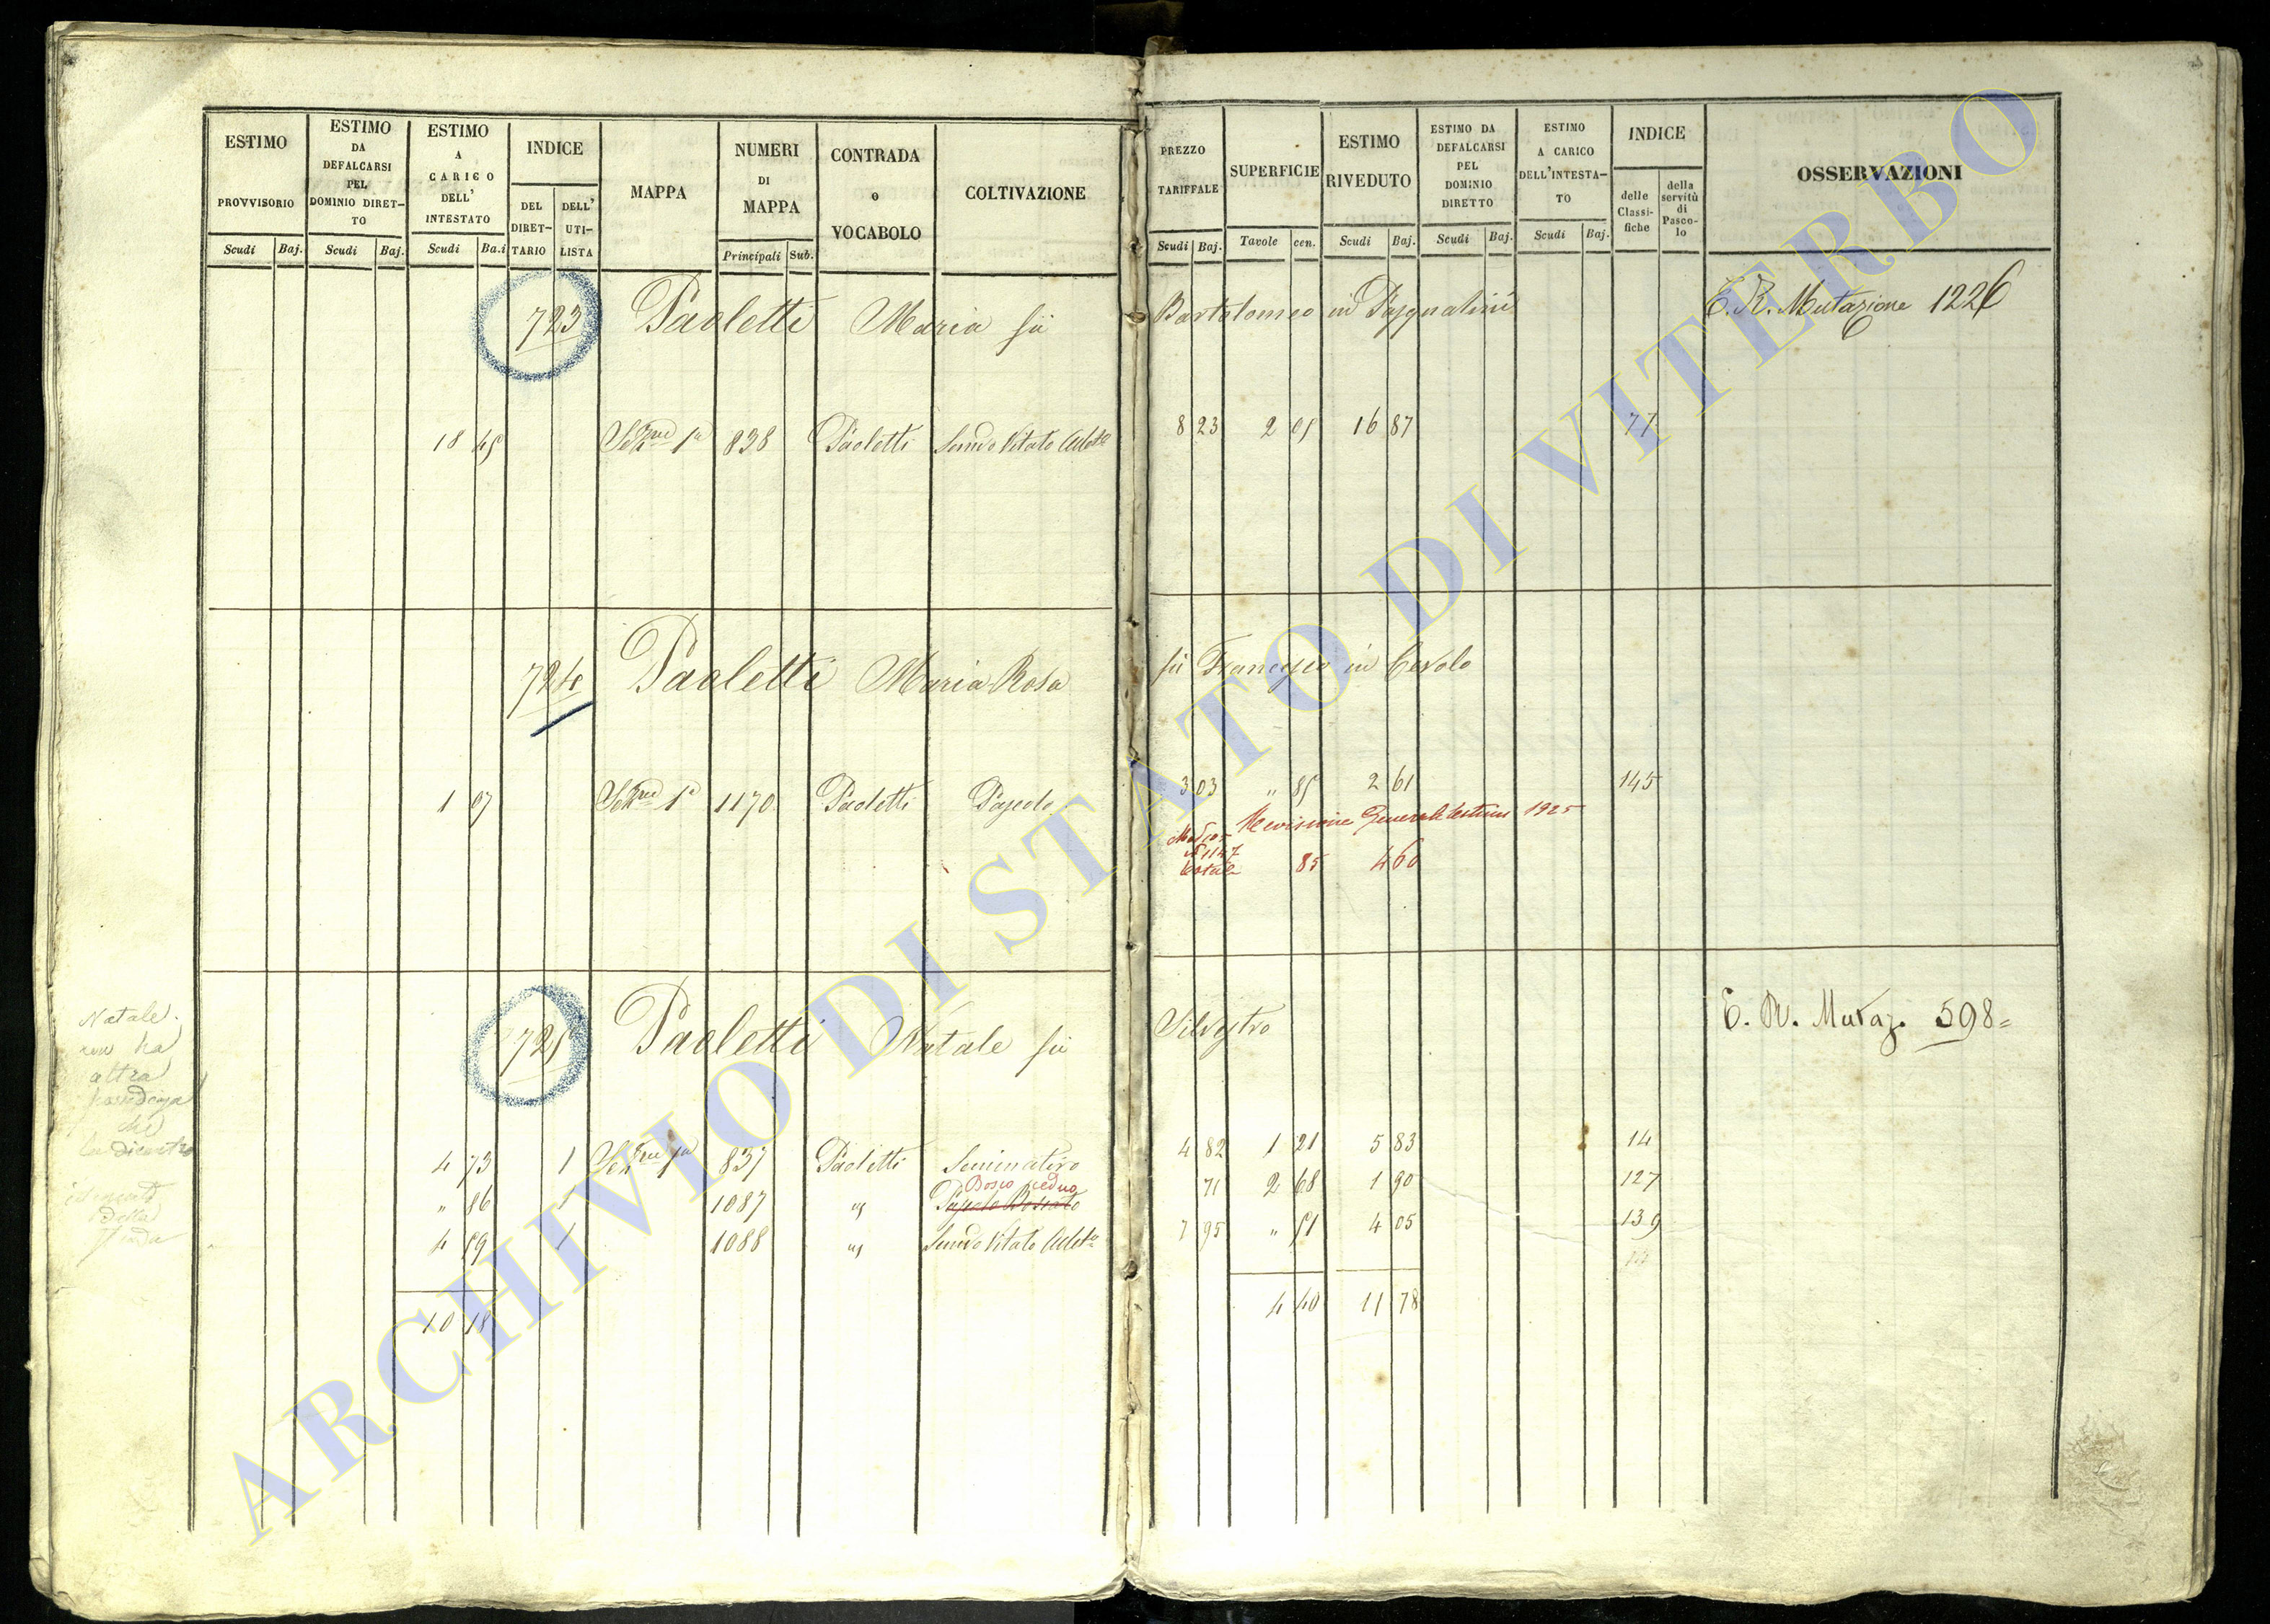 ESTIMO PROVVISORIO
Scudi Baj.
ESTIMO DA DEFALCARSI PEL DOMINIO DIRET-TO
Scudi Baj.
ESTIMO A CARICO DELL' INTESTATO
Scudi Ba.i
INDICE
DEL DIRET-TARIO
DELL' UTI-LISTA
MAPPA
NUMERI DI MAPPA
Principali Sub.
CONTRADA o VOCABOLO
COLTIVAZIONE
PREZZO TARIFFALE
Scudi Baj.
SUPERFICIE
Tavole cen.
ESTIMO RIVEDUTO
Scudi Baj.
ESTIMO DA DEFALCARSI PEL DOMINIO DIRETTO
Scudi Baj.
ESTIMO A CARICO DELL'INTESTA-TO
Scudi Baj.
INDICE
delle Classi-fiche
della servitù di Pasco-lo
OSSERVAZIONI
723 Paoletti Maria fù Bartolomeo in Pasqualini
C. R. Mutazione 1226
18 45 Sezne 1a 838 Paoletti Semvo Vitato 8 23 2 05 16 87 77
724 Paoletti Maria Rosa fù Francesco in Cerolo
1 07 Sezne 1a 1170 Paoletti Pascolo 3 03 " 85 2 61 145
Revisione Generale 1925
85 4 60
725 Paoletti Natale fù Silvestro
C. R. Mutaz. 598=
Natale
non ha
altra
possidenza
che
della
4 73 1 Sezne 1a 837 Paoletti Seminativo 4 82 1 21 5 83 14
Bosco ceduo
" 86 1 1087 " Pascolo Boscato 71 2 68 1 90 127
4 59 1 1088 " Semvo Vitato 7 95 " 51 4 05 139
10 18 4 40 11 78
ARCHIVIO DI STATO DI VITERBO